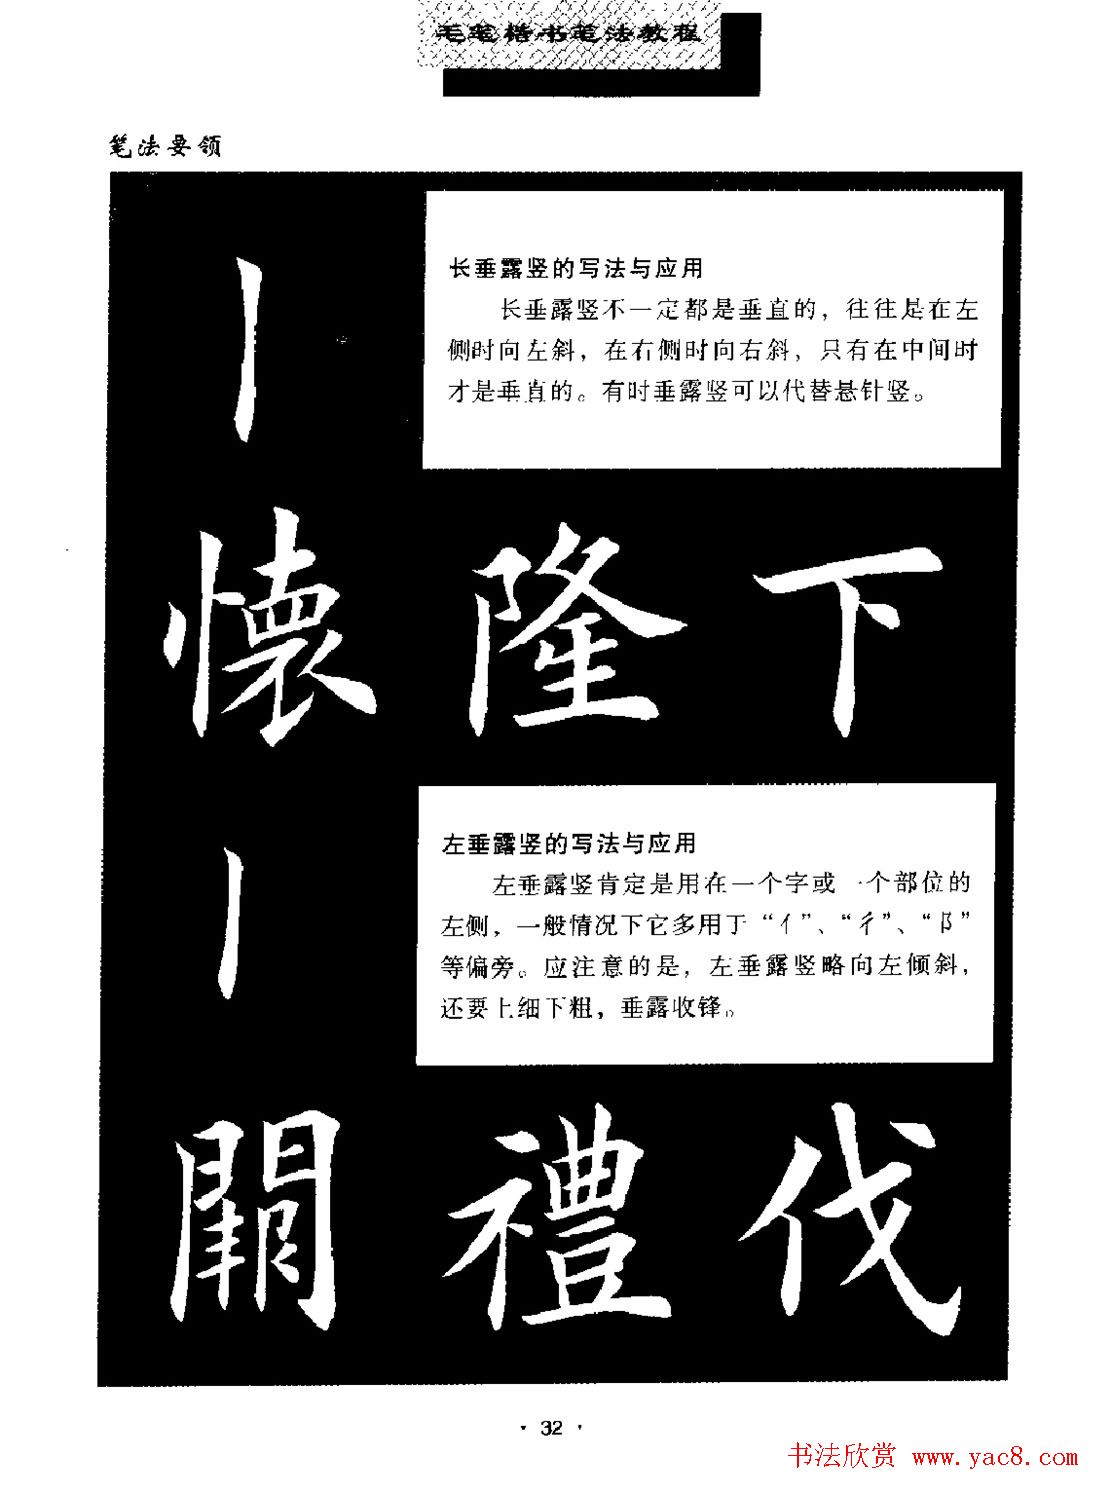 毛笔楷书笔法教程
笔法要领
长垂露竖的写法与应用
长垂露竖不一定都是垂直的，往往是在左
侧时向左斜，在右侧时向右斜，只有在中间时
才是垂直的。有时垂露竖可以代替悬针竖。
懷 隆 下
左垂露竖的写法与应用
左垂露竖肯定是用在一个字或一个部位的
左侧，一般情况下它多用于“亻”、“彳”、“阝”
等偏旁。应注意的是，左垂露竖略向左倾斜，
还要上细下粗，垂露收锋。
禮 伐
· 32 ·
书法欣赏 www.yac8.com